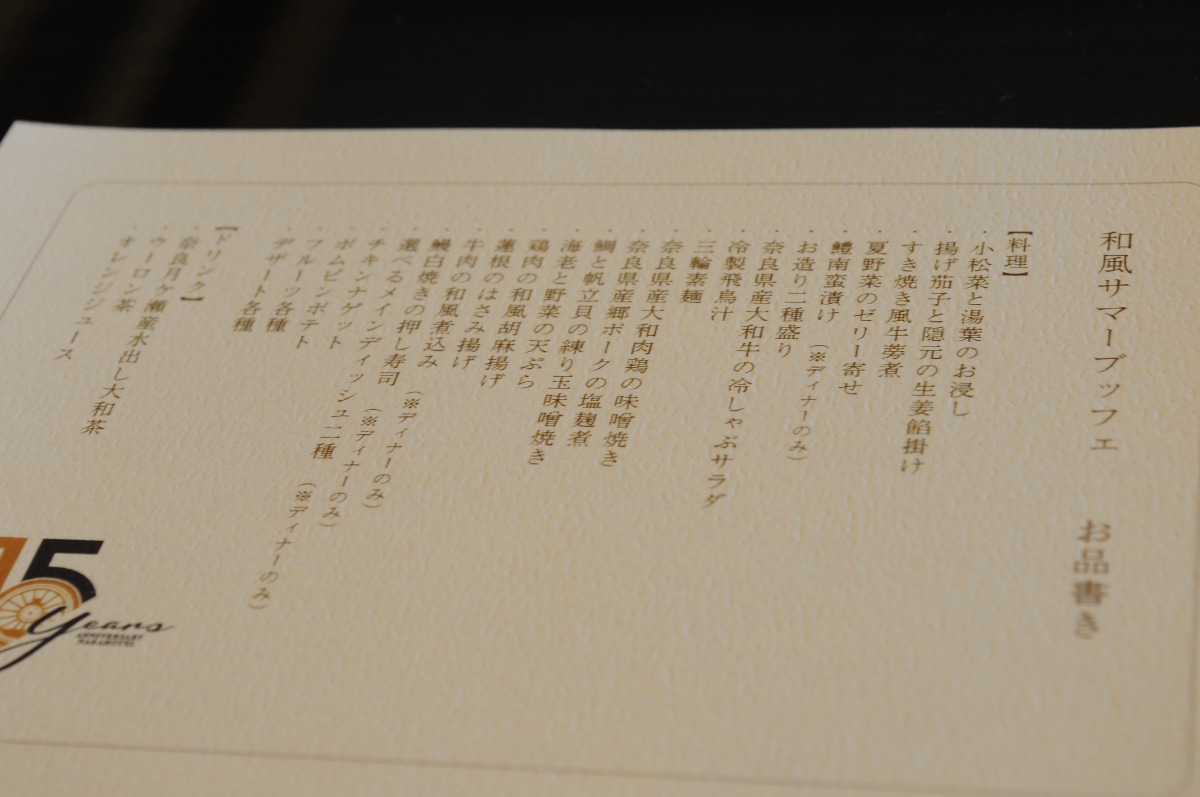 和風サマーブッフェ　お品書き
【料理】
・小松菜と湯葉のお浸し
・揚げ茄子と隠元の生姜餡掛け
・すき焼き風牛蒡煮
・夏野菜のゼリー寄せ
・鱧南蛮漬け
・お造り二種盛り（※ディナーのみ）
・奈良県産大和牛の冷しゃぶサラダ
・冷製飛鳥汁
・三輪素麺
・奈良県産大和肉鶏の味噌焼き
・奈良県産郷ポークの塩麹煮
・鯛と帆立貝の練り玉味噌焼き
・海老と野菜の天ぷら
・鶏肉の和風胡麻揚げ
・蓮根のはさみ揚げ
・牛肉の和風煮込み（※ディナーのみ）
・鰻白焼きの押し寿司（※ディナーのみ）
・選べるメインディッシュ二種（※ディナーのみ）
・チキンナゲット
・ポムピンポテト
・フルーツ各種
・デザート各種
【ドリンク】
・奈良月ヶ瀬産水出し大和茶
・ウーロン茶
・オレンジジュース
15
years
ANNIVERSARY
NARAHOTEL